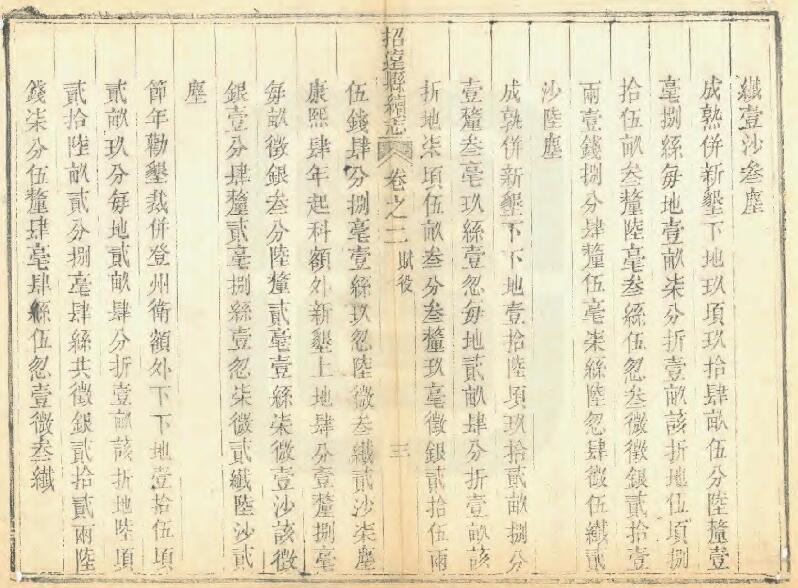 纎壹沙叄塵
成熟併新墾下地玖項玖拾肆畝伍分陸釐壹
毫捌絲每地壹畝柒分折壹畝該折地伍項捌
拾伍畝叄釐陸毫叄絲伍忽叄微徵銀貳拾壹
兩壹錢捌分肆釐伍毫柒絲陸忽肆微伍纎貳
沙陸塵
成熟併新墾下下地壹拾陸項玖拾貳畝捌分
壹釐叄毫玖絲壹忽每地貳畝肆分折壹畝該
折地柒項伍畝叄分叄釐玖毫徵銀貳拾伍兩
招遠縣續志 卷之二 賦役 三
伍錢肆分捌毫壹絲玖忽陸微叄纎貳沙柒塵
康熙肆年起科額外新墾上地肆分壹釐捌毫
每畝徵銀叄分陸釐貳毫壹絲柒微壹沙該徵
銀壹分肆釐貳毫捌絲壹忽柒微貳纎陸沙貳
塵
節年勸墾裁併登州衛額外下下地壹拾伍項
貳畝玖分每地貳畝肆分折壹畝該折地陸項
貳拾陸畝貳分捌毫肆絲共徵銀貳拾貳兩陸
錢柒分伍釐肆毫肆絲伍忽壹微叄纎